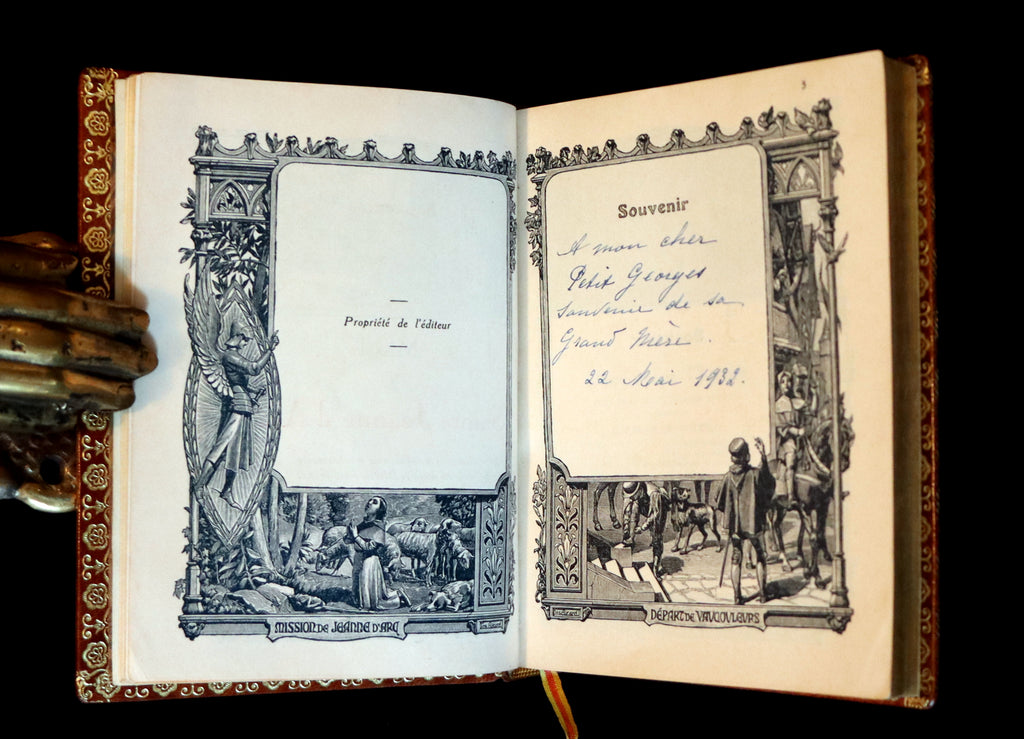 Propriété de l'éditeur
MISSION DE JEANNE D'ARC
3
Souvenir
A mon cher
Petit Georges
Souvenir de sa
Grand Mère.
22 Mai 1932.
DÉPART DE VAUCOULEURS